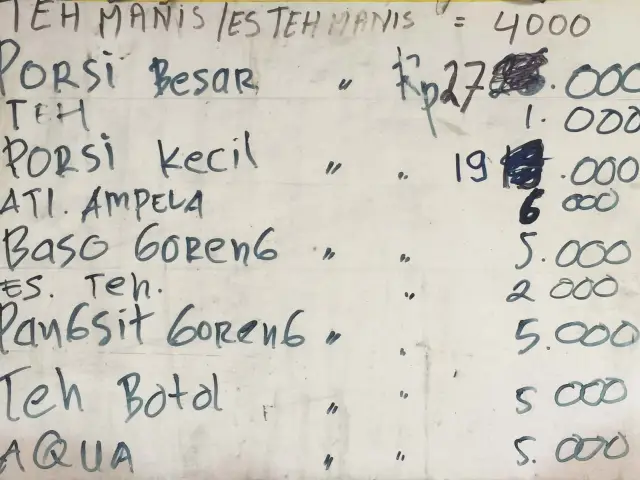 TEH MANIS /ES TEH MANIS = 4000
PORSI BESAR " Rp 27.000
TEH 1.000
PORSI KECIL " " 19.000
ATI. AMPELA 6 000
BASO GORENG " " 5.000
ES. TEH. " 2 000
PANGSIT GORENG " " 5.000
TEH BOTOL " " 5 000
AQUA " " 5.000